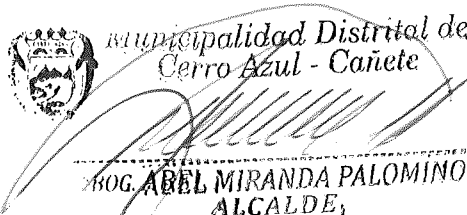 Municipalidad Distrital de
Cerro Azul - Cañete
ABOG. ABEL MIRANDA PALOMINO
ALCALDE